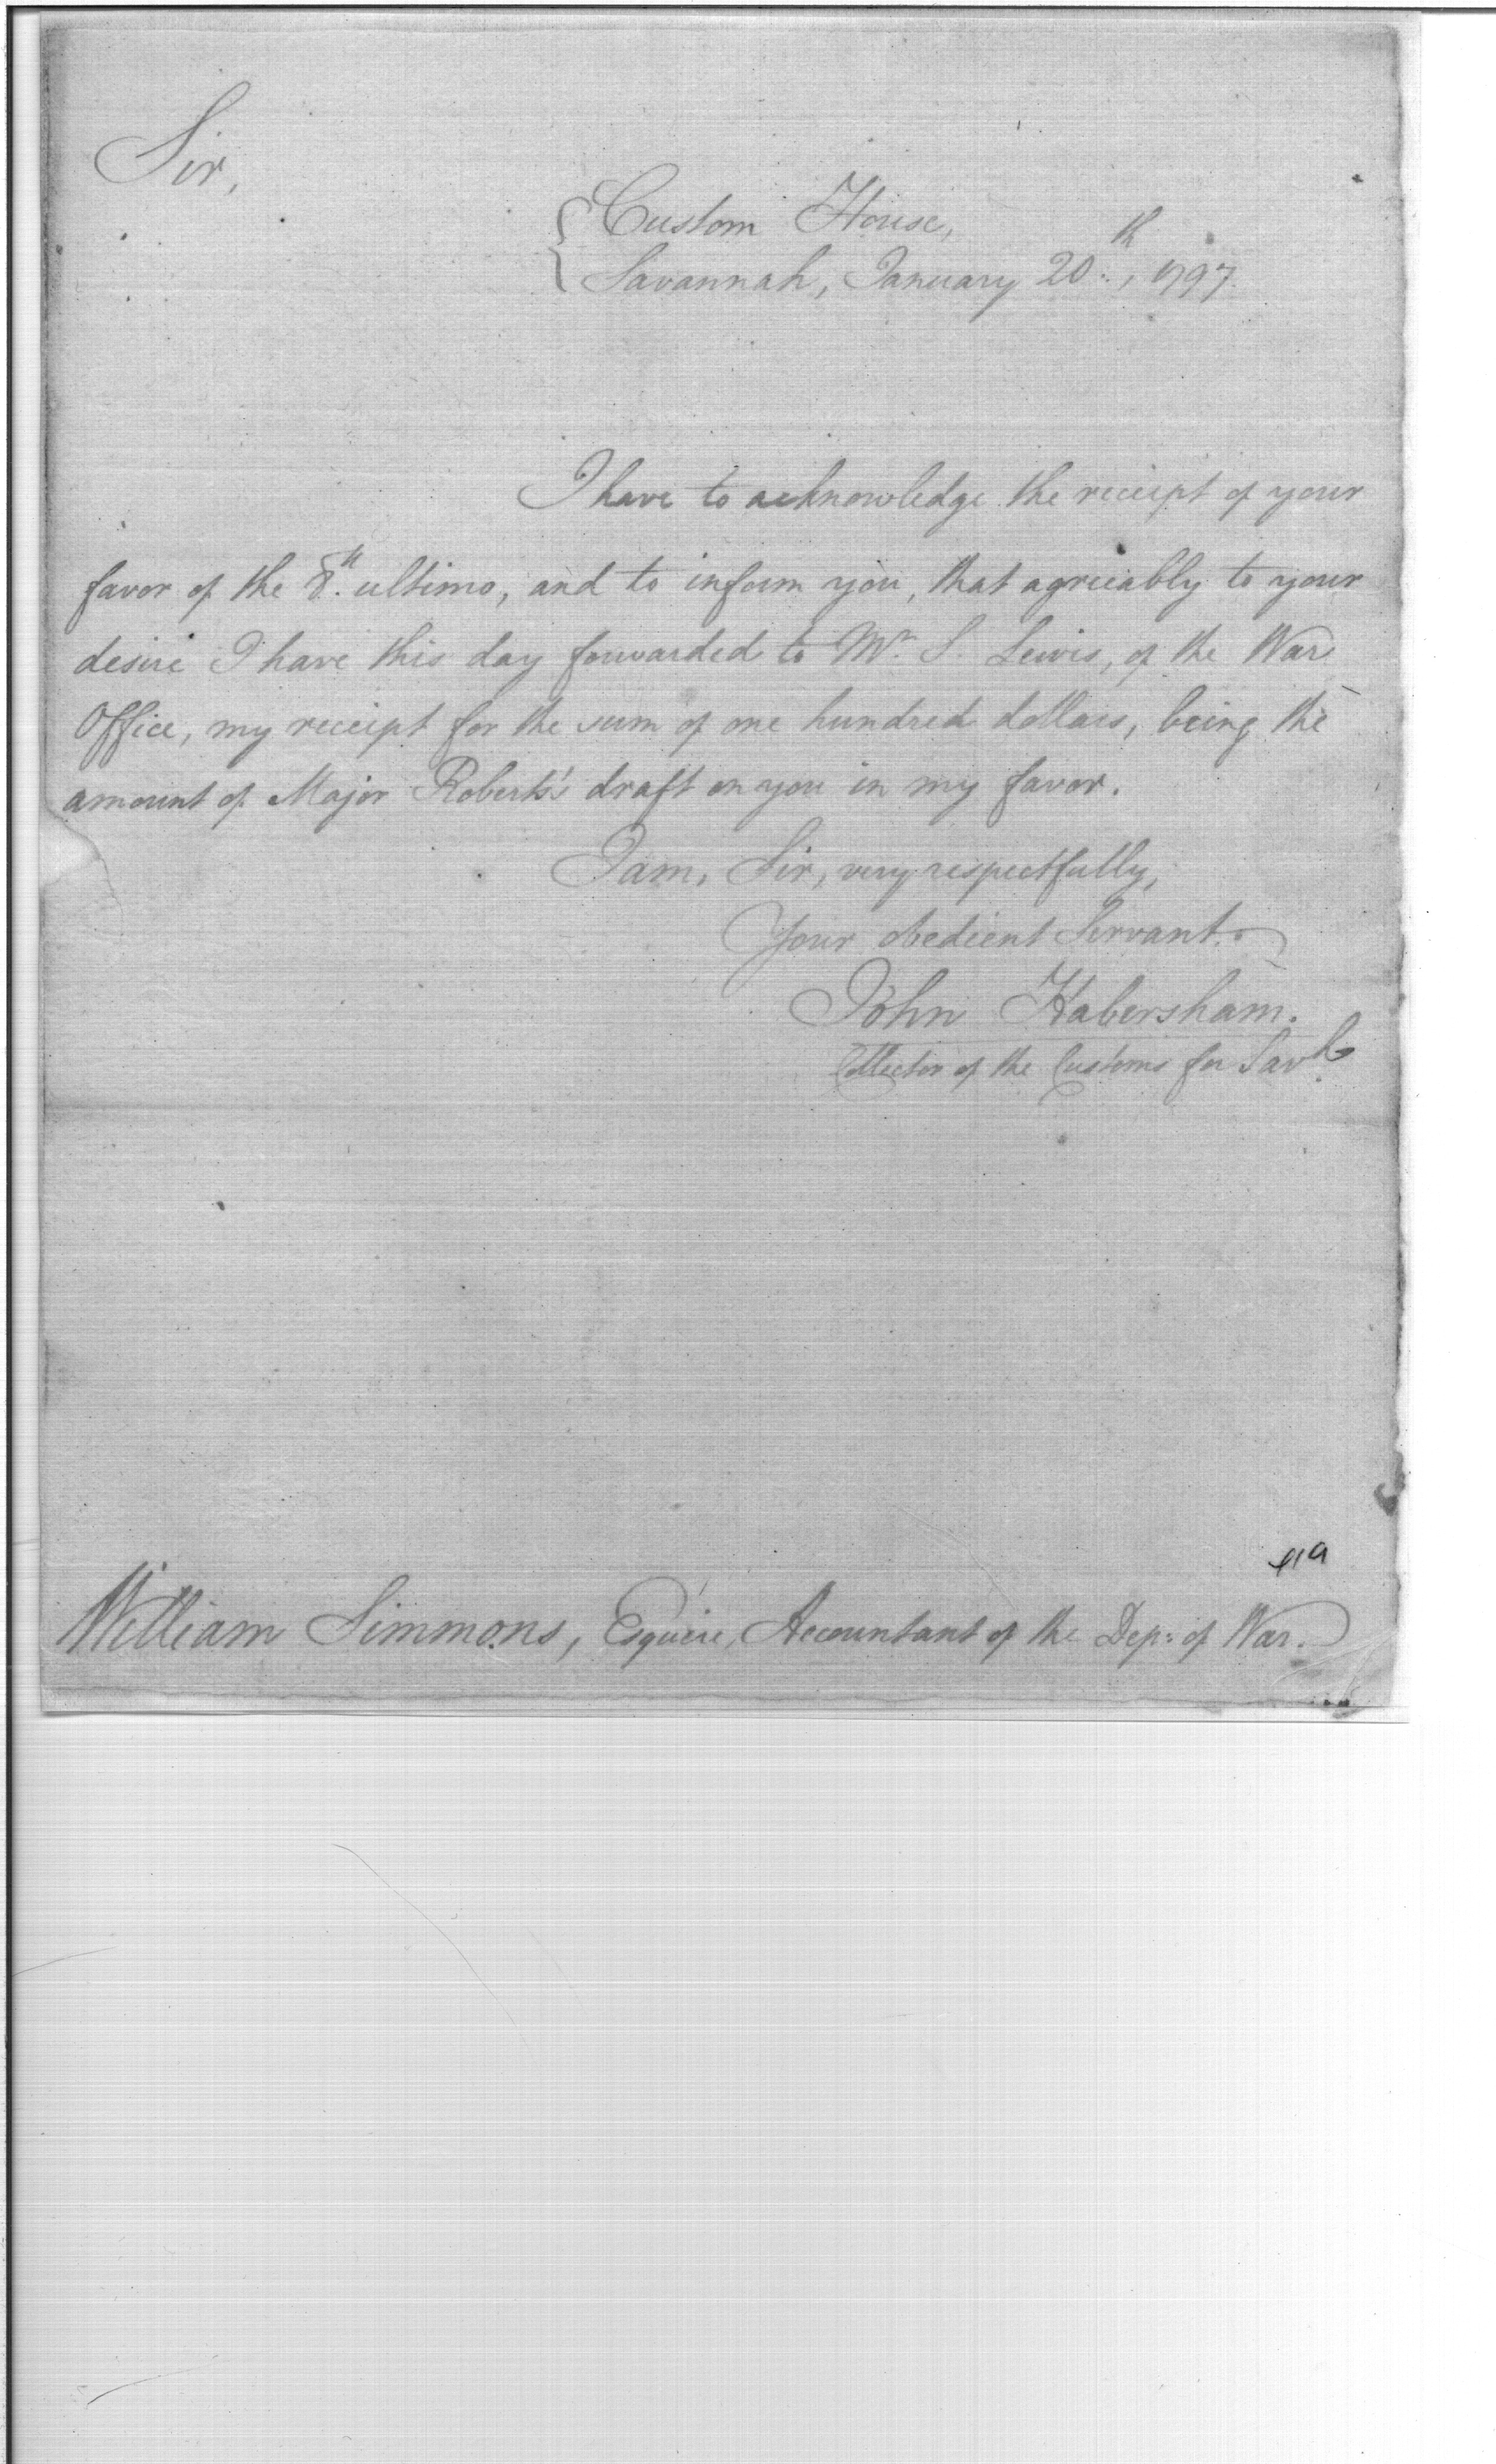 Sir,
Custom House,
Savannah, January 20th, 1797.
I have to acknowledge the receipt of your
favor of the 8th ultimo, and to inform you, that agreeably to your
desire I have this day forwarded to Mr. S. Lewis, of the War
Office, my receipt for the sum of one hundred dollars, being the
amount of Major Roberts's draft on you in my favor.
I am, Sir, very respectfully,
Your obedient Servant.
John Habersham.
Collector of the Customs for Savh
William Simmons, Esquire, Accountant of the Dep: of War.